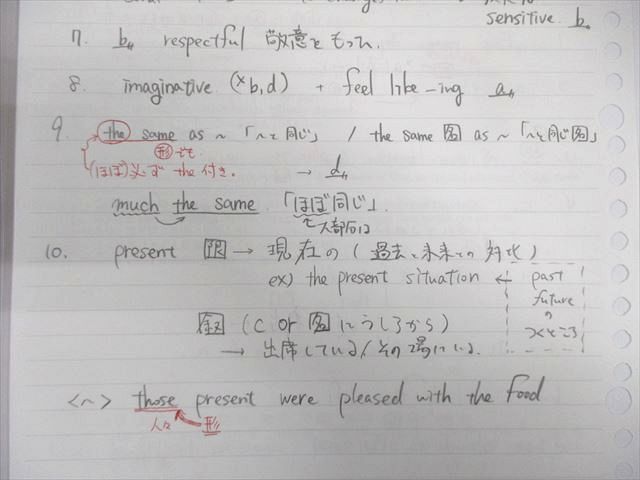 sensitive. b.
7. b〃 respectful 敬意をもった
8. imaginative (×b,d) + feel like -ing a〃
9. the same as ~「〜と同じ」 / the same 名 as ~「〜と同じ名」
形でも
(ほぼ)必ず the 付き。 → d〃
much the same 「ほぼ同じ」.
大部分は
10. present 限 → 現在の(過去と未来との対比)
ex) the present situation ← past
future
の
つくところ
叙 (C or 名 にうしろから)
→ 出席している/その場にいる.
<〜> those present were pleased with the food
人々 形